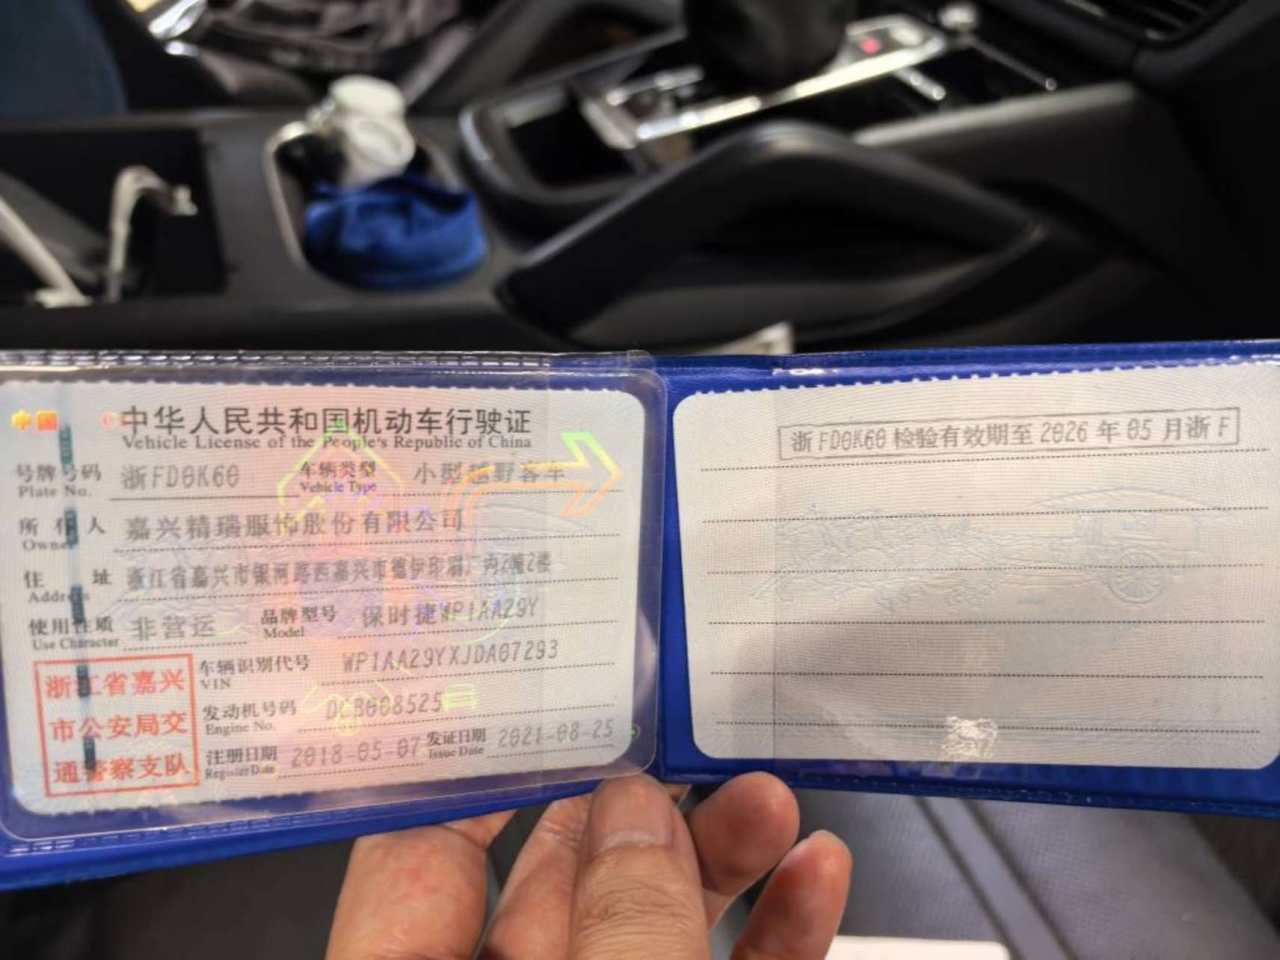 中国 中华人民共和国机动车行驶证
Vehicle License of the People's Republic of China
号牌号码 浙FD0K60 车辆类型 小型越野客车
Plate No. Vehicle Type
所有人 嘉兴精瑞服饰股份有限公司
Owner
住址 浙江省嘉兴市银河路西嘉兴市德伊印刷厂内2幢2楼
Address
使用性质 非营运 品牌型号 保时捷WP1AA29Y
Use Character Model
浙江省嘉兴
市公安局交
通警察支队
车辆识别代号 WP1AA29YXJDA07293
VIN
发动机号码 DCB008525
Engine No.
注册日期 2018-05-07 发证日期 2021-08-25
Register Date Issue Date
浙FD0K60检验有效期至2026年05月浙F